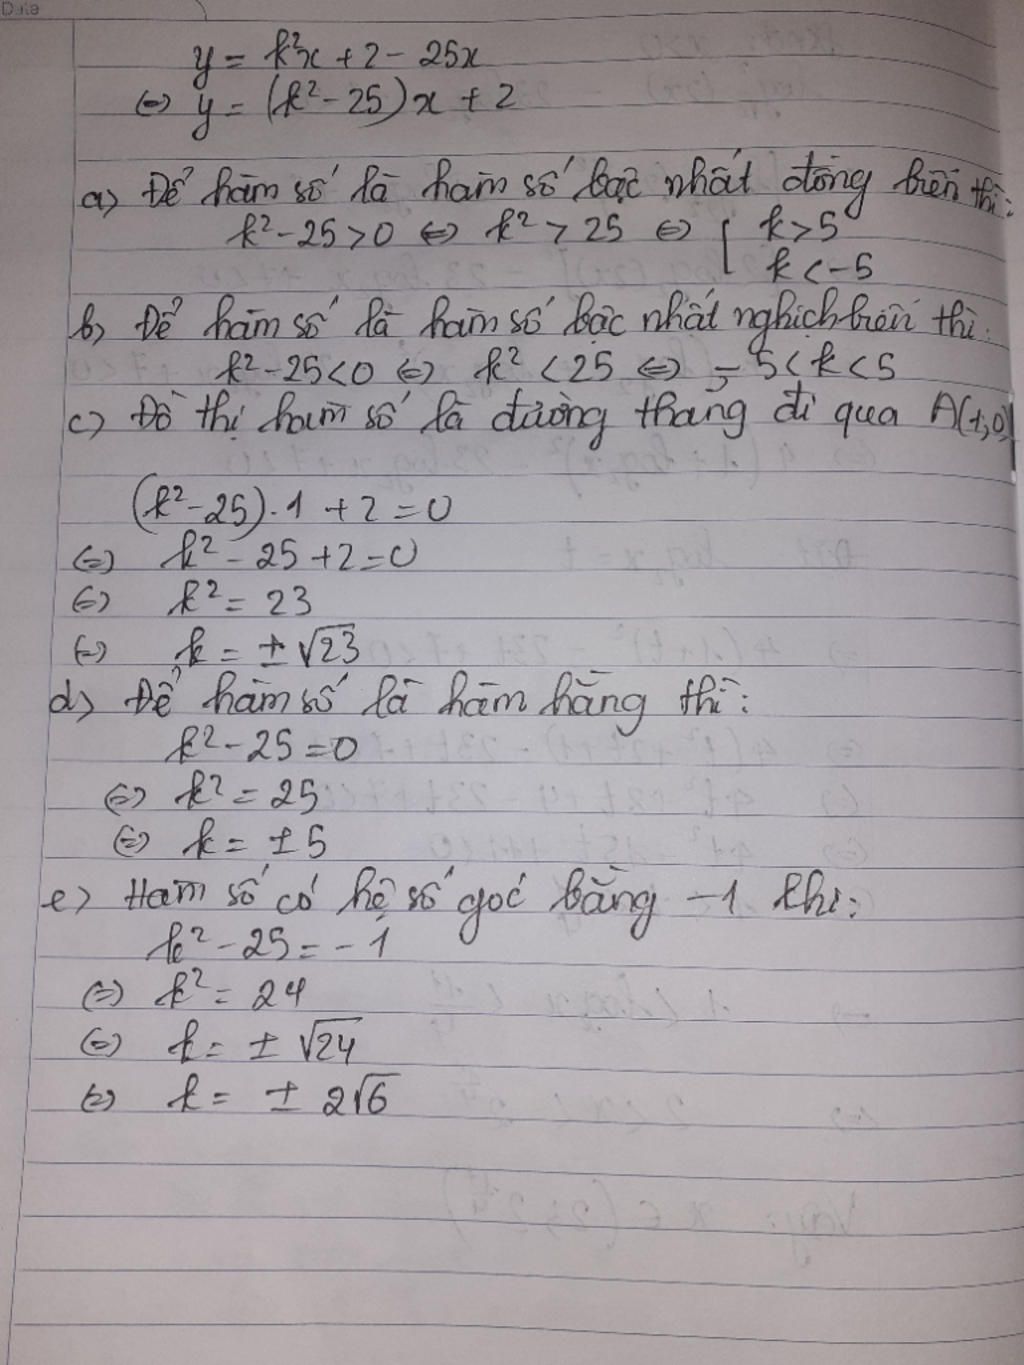 Date
y = k²x + 2 - 25x
⇔ y = (k² - 25)x + 2
a) Để hàm số là hàm số bậc nhất đồng biến thì:
k² - 25 > 0 ⇔ k² > 25 ⇔ [ k > 5
k < -5
b) Để hàm số là hàm số bậc nhất nghịch biến thì:
k² - 25 < 0 ⇔ k² < 25 ⇔ -5 < k < 5
c) Đồ thị hàm số là đường thẳng đi qua A(1;0)
(k² - 25).1 + 2 = 0
⇔ k² - 25 + 2 = 0
⇔ k² = 23
⇔ k = ±√23
d) Để hàm số là hàm hằng thì:
k² - 25 = 0
⇔ k² = 25
⇔ k = ±5
e) Hàm số có hệ số góc bằng -1 khi:
k² - 25 = -1
⇔ k² = 24
⇔ k = ±√24
⇔ k = ± 2√6